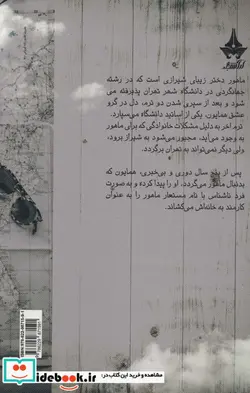 ماهور دختر زیبای شیرازی است که در رشته
جهانگردی در دانشگاه شهر تهران پذیرفته می
شود و بعد از سپری شدن دو ترم، دل در گرو
عشق همایون، یکی از اساتید دانشگاه می‌سپارد.
ترم آخر به دلیل مشکلات خانوادگی که برای ماهور
به وجود می‌آید، مجبور می‌شود به شیراز برود،
ولی دیگر نمی‌تواند به تهران برگردد.
پس از پنج سال دوری و بی‌خبری، همایون که
بدنبال ماهور می‌گردد، او را پیدا کرده و به صورت
فرد ناشناسی با نام مستعار ماهور را به عنوان
کارمند به خانه‌اش می‌کشاند.
مشاهده و خرید این کتاب در:
idebook.ir